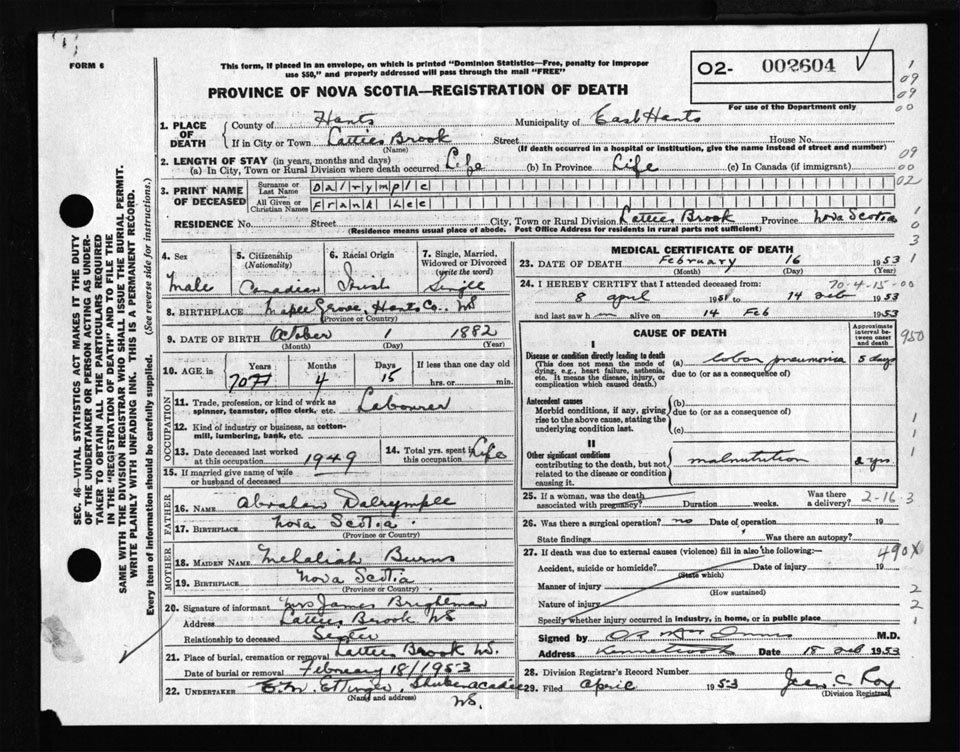 FORM 6
This form, if placed in an envelope, on which is printed "Dominion Statistics—Free, penalty for improper
use $50," and properly addressed will pass through the mail "FREE"
02- 002604
For use of the Department only
PROVINCE OF NOVA SCOTIA—REGISTRATION OF DEATH
1. PLACE OF DEATH
County of Hants Municipality of East Hants
If in City or Town Latties Brook Street House No.
(Name) (If death occurred in a hospital or institution, give the name instead of street and number)
2. LENGTH OF STAY (in years, months and days)
(a) In City, Town or Rural Division where death occurred Life (b) In Province Life (c) In Canada (if immigrant)
3. PRINT NAME OF DECEASED
Surname or Last Name Dalrymple
All Given or Christian Names Frank Lee
RESIDENCE No. Street City, Town or Rural Division Latties Brook Province Nova Scotia
(Residence means usual place of abode. Post Office Address for residents in rural parts not sufficient)
4. Sex Male
5. Citizenship (Nationality) Canadian
6. Racial Origin Irish
7. Single, Married, Widowed or Divorced (write the word) Single
8. BIRTHPLACE Maple Grove, Hants Co., NS
(Province or Country)
9. DATE OF BIRTH October 1 1882
(Month) (Day) (Year)
10. AGE in Years 70 Months 4 Days 15 If less than one day old hrs. or min.
OCCUPATION
11. Trade, profession, or kind of work as spinner, teamster, office clerk, etc. Labourer
12. Kind of industry or business, as cotton-mill, lumbering, bank, etc.
13. Date deceased last worked at this occupation 1949
14. Total yrs. spent in this occupation Life
15. If married give name of wife or husband of deceased
FATHER
16. NAME Dalrymple
17. BIRTHPLACE Nova Scotia
(Province or Country)
MOTHER
18. MAIDEN NAME Burns
19. BIRTHPLACE Nova Scotia
(Province or Country)
20. Signature of informant Mrs James
Address Latties Brook NS
Relationship to deceased Sister
21. Place of burial, cremation or removal Latties Brook NS.
Date of burial or removal February 18/1953
22. UNDERTAKER E.M. Ettinger, Shubenacadie NS.
(Name and address)
MEDICAL CERTIFICATE OF DEATH
23. DATE OF DEATH February 16 1953
(Month) (Day) (Year)
24. I HEREBY CERTIFY that I attended deceased from 70-4-15-00
8 April 1951 to 14 Feb 1953
and last saw h m alive on 14 Feb 1953
CAUSE OF DEATH
Approximate interval between onset and death
I
Disease or condition directly leading to death
(This does not mean the mode of dying, e.g., heart failure, asthenia, etc. It means the disease, injury, or complication which caused death.)
(a) lobar pneumonia 5 days
due to (or as a consequence of)
Antecedent causes
Morbid conditions, if any, giving rise to the above cause, stating the underlying condition last.
(b)
due to (or as a consequence of)
(c)
II
Other significant conditions
contributing to the death, but not related to the disease or condition causing it.
malnutrition 2 yrs.
25. If a woman, was the death associated with pregnancy? Duration weeks. Was there a delivery? 2-16-3
26. Was there a surgical operation? no Date of operation 19
State findings Was there an autopsy?
27. If death was due to external causes (violence) fill in also the following: 490X
Accident, suicide or homicide? Date of injury 19
(State which)
Manner of injury
(How sustained)
Nature of injury
Specify whether injury occurred in industry, in home, or in public place
Signed by M.D.
Address Kennetcook Date 18 Feb 1953
28. Division Registrar's Record Number
29. Filed April 1953 Jean C. Roy
(Division Registrar)
SEC. 46—VITAL STATISTICS ACT MAKES IT THE DUTY
OF THE UNDERTAKER OR PERSON ACTING AS UNDER-
TAKER TO OBTAIN ALL THE PARTICULARS REQUIRED
IN THE "REGISTRATION OF DEATH" AND TO FILE THE
SAME WITH THE DIVISION REGISTRAR WHO SHALL ISSUE THE BURIAL PERMIT.
WRITE PLAINLY WITH UNFADING INK. THIS IS A PERMANENT RECORD.
Every item of information should be carefully supplied. (See reverse side for instructions.)
1
09
09
00
09
00
02
1
0
3
1
950
1
1
1
2
2
1